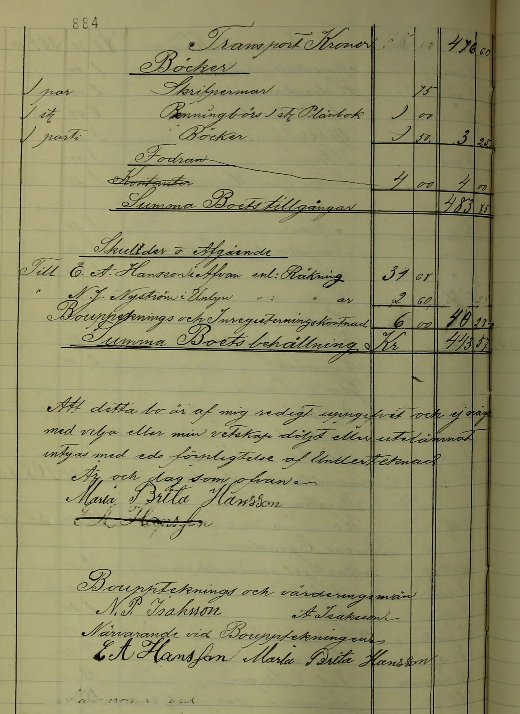 884
Transport Kronor 476 60
Böcker
1 par Skrifpermar 75
1 st Penningbörs 1 st Plånbok 1 00
1 parti Böcker 1 50 3 25
Fodran
Kontanter 4 00 4 00
Summa Boets tillgångar 483 85
Skulder o Afgående
Till E. A. Hansson i Alvan enl: Räkning 31 68
" N. J. Nyström i " : " ar 2 60
Boupptecknings och Inregistreringskostnad 6 00 40
Summa Boets behållning Kr 443 57
Att detta bo är af mig redigt uppgifvet och ej något
med vilja eller min vetskap döljt eller utelämnat
intygas med eds förpligtelse af Undertecknad
År och dag som ofvan.
Maria Brita Hansson
E A Hansson
Boupptecknings och värderingsmän
N. P. Isaksson A Isaksson
Närvarande vid Bouppteckningen
E A Hansson Maria Brita Hansson